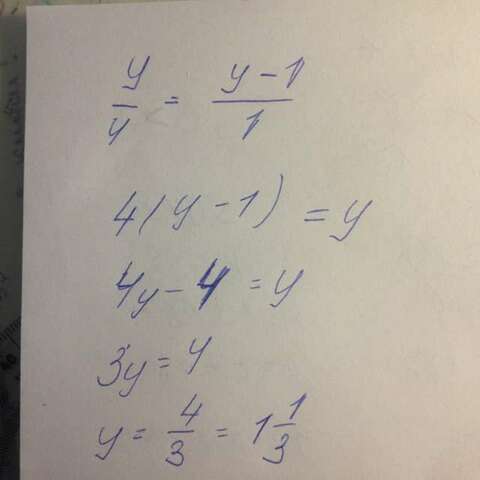 y/4 = (y-1)/1
4(y-1) = y
4y-4 = y
3y = 4
y = 4/3 = 1 1/3